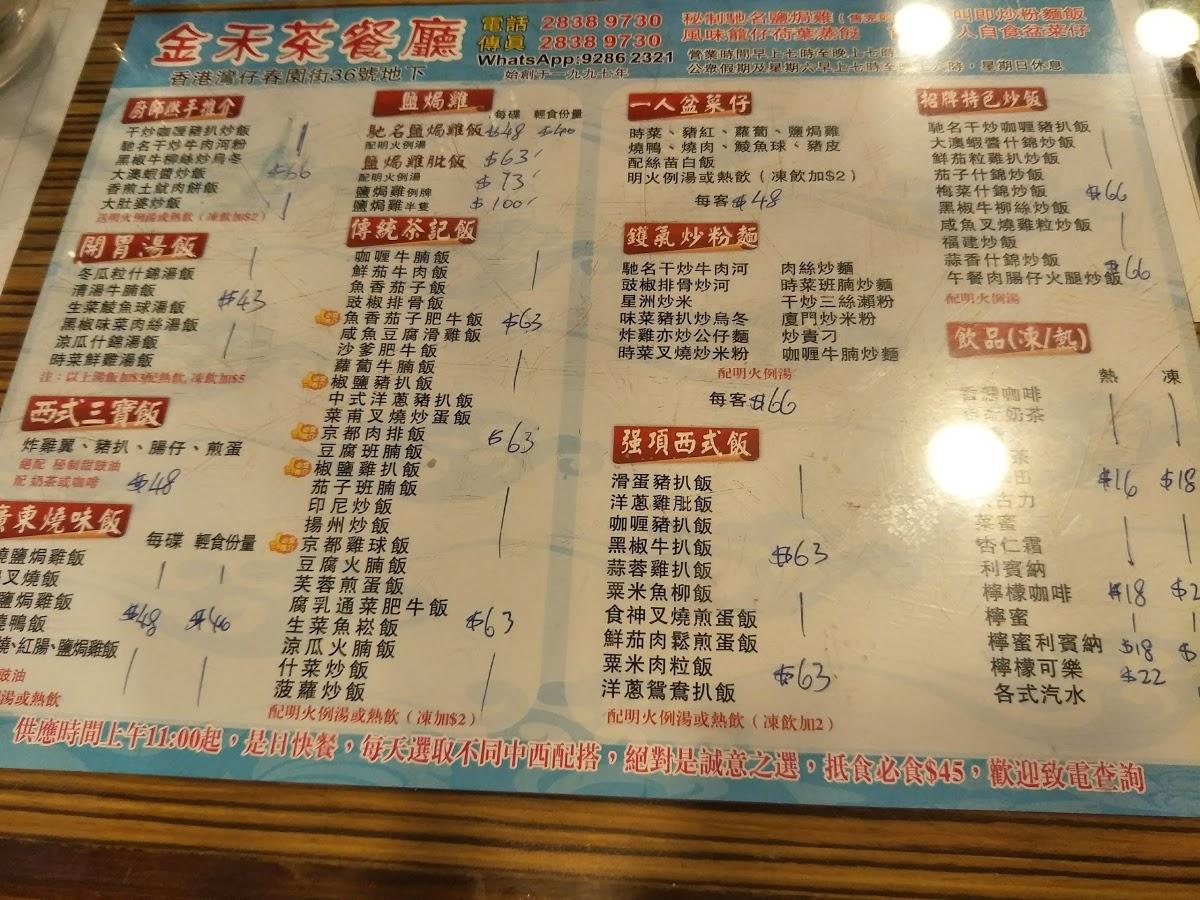 金禾茶餐廳
電話 2838 9730
傳真 2838 9730
WhatsApp:9286 2321
始創于一九九七年
香港灣仔春園街36號地下
秘制馳名鹽焗雞(售完 叫即炒粉麵飯
風味龍仔荷葉蒸飩 人自食盆菜仔
營業時間早上七時至晚上七時
公眾假期及星期六早上七時至 六時，星期日休息
廚師熱手推介
干炒咖喱豬扒炒飯
馳名干炒牛肉河粉
黑椒牛柳絲炒烏冬
大澳蝦醬炒飯
$66
香煎土魷肉餅飯
大肚婆炒飯
送明火例湯或熱飲(凍飲加$2)
開胃湯飯
冬瓜粒什錦湯飯
清湯牛腩飯
生菜鯪魚球湯飯
$43
黑椒味菜肉絲湯飯
涼瓜什錦湯飯
時菜鮮雞湯飯
注：以上湯飯加$3配熱飲, 凍飲加$5
西式三寶飯
炸雞翼、豬扒、腸仔、煎蛋
絕配 秘制甜豉油
配 奶茶或咖啡
$48
廣東燒味飯
每碟 輕食份量
燒鹽焗雞飯
叉燒飯
鹽焗雞飯
燒鴨飯
$48 $40
燒、紅腸、鹽焗雞飯
豉油
湯或熱飲
鹽焗雞
每碟 輕食份量
馳名鹽焗雞飯 $48 $40
配明火例湯
鹽焗雞肶飯 $63
配明火例湯
鹽焗雞例牌 $73
鹽焗雞半隻 $100
傳統茶記飯
咖喱牛腩飯
鮮茄牛肉飯
魚香茄子飯
豉椒排骨飯
魚香茄子肥牛飯 $63
咸魚豆腐滑雞飯
沙爹肥牛飯
蘿蔔牛腩飯
椒鹽豬扒飯
中式洋蔥豬扒飯
菜甫叉燒炒蛋飯
京都肉排飯 $63
豆腐班腩飯
椒鹽雞扒飯
茄子班腩飯
印尼炒飯
揚州炒飯
京都雞球飯
豆腐火腩飯
芙蓉煎蛋飯
腐乳通菜肥牛飯
生菜魚崧飯 $63
涼瓜火腩飯
什菜炒飯
菠蘿炒飯
配明火例湯或熱飲(凍加$2)
一人盆菜仔
時菜、豬紅、蘿蔔、鹽焗雞
燒鴨、燒肉、鯪魚球、豬皮
配絲苗白飯
明火例湯或熱飲(凍飲加$2)
每客$48
鑊氣炒粉麵
馳名干炒牛肉河 肉絲炒麵
豉椒排骨炒河 時菜班腩炒麵
星洲炒米 干炒三絲瀨粉
味菜豬扒炒烏冬 廈門炒米粉
炸雞亦炒公仔麵 炒貴刁
時菜叉燒炒米粉 咖喱牛腩炒麵
配明火例湯
每客$66
强項西式飯
滑蛋豬扒飯
洋蔥雞肶飯
咖喱豬扒飯
黑椒牛扒飯
$63
蒜蓉雞扒飯
粟米魚柳飯
食神叉燒煎蛋飯
鮮茄肉鬆煎蛋飯
粟米肉粒飯
$63
洋蔥鴛鴦扒飯
配明火例湯或熱飲(凍飲加2)
招牌特色炒飯
馳名干炒咖喱豬扒飯
大澳蝦醬什錦炒飯
鮮茄粒雞扒炒飯
茄子什錦炒飯
梅菜什錦炒飯
$66
黑椒牛柳絲炒飯
咸魚叉燒雞粒炒飯
福建炒飯
蒜香什錦炒飯
$66
午餐肉腸仔火腿炒飯
配明火例湯
飲品(凍/熱)
熱 凍
香濃咖啡
奶茶
茶
$16 $18
古力
菜蜜
杏仁霜
利賓納
檸檬咖啡 $18 $2
檸蜜
檸蜜利賓納 $18 $
檸檬可樂 $22
各式汽水
供應時間上午11:00起，是日快餐，每天選取不同中西配搭，絕對是誠意之選，抵食必食$45，歡迎致電查詢